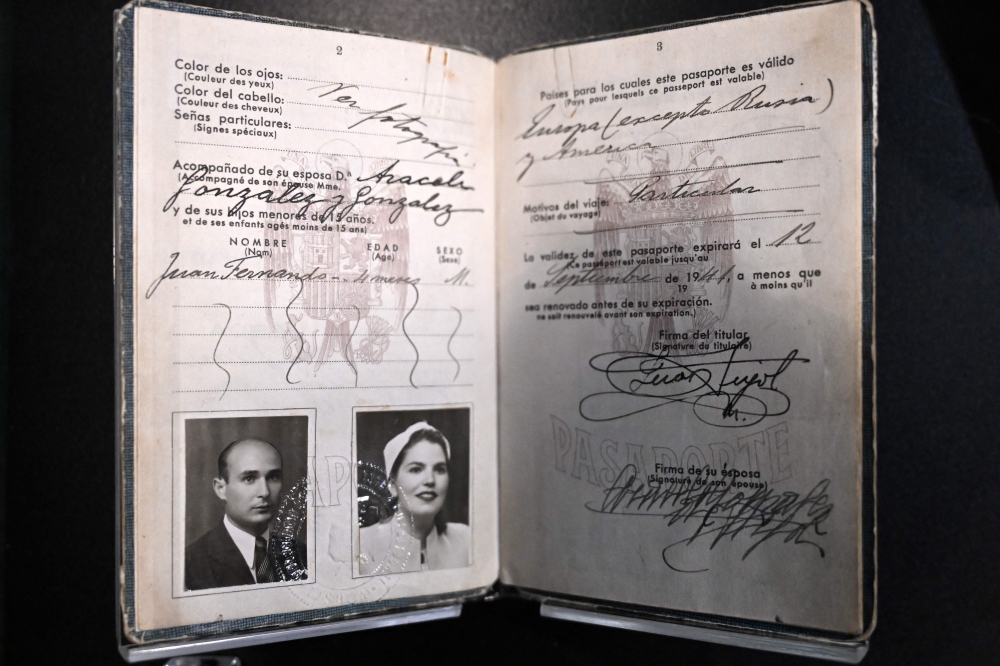 2
Color de los ojos:
(Couleur des yeux)
Color del cabello:
(Couleur des cheveux)
Ver fotografía
Señas particulares:
(Signes spéciaux)
Acompañado de su esposa D.ª Araceli
(Accompagné de son épouse Mme.
González y González
y de sus hijos menores de 15 años.
et de ses enfants agés moins de 15 ans)
NOMBRE EDAD SEXO
(Nom) (Age) (Sexe)
Juan Fernando 4 meses M.
3
Países para los cuales este pasaporte es válido
(Pays pour lesquels ce passeport est valable)
Europa (excepto Rusia)
y América
Motivos del viaje: Particular
(Objet du voyage)
La validez de este pasaporte expirará el 12
(Ce passeport est valable jusqu'au
de Septiembre de 1944, a menos que
19 à moins qu'il
sea renovado antes de su expiración.
ne soit renouvelé avant son expiration.)
Firma del titular
(Signature du titulaire)
Juan Pujol
PASAPORTE
Firma de su esposa
(Signature de son épouse)